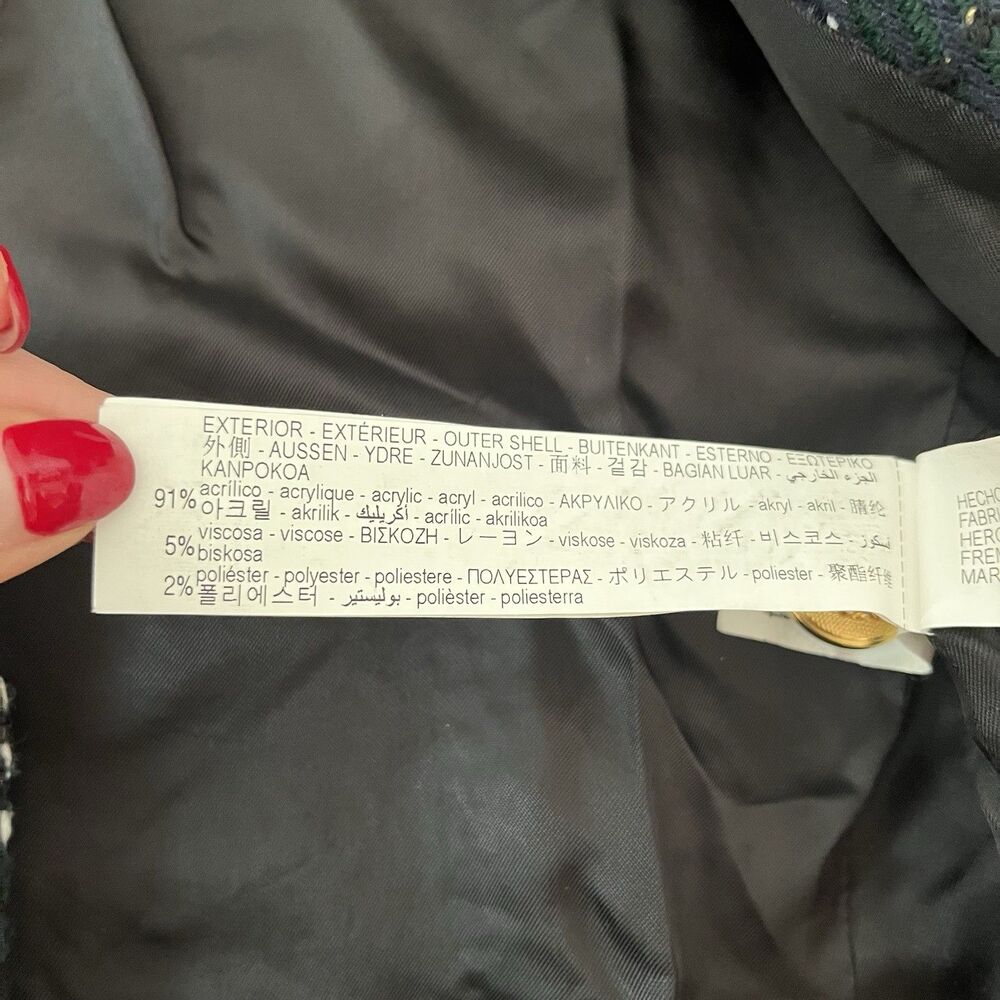 EXTERIOR - EXTÉRIEUR - OUTER SHELL - BUITENKANT - ESTERNO - ΕΞΩΤΕΡΙΚΟ
外側 - AUSSEN - YDRE - ZUNANJOST - 面料 - 겉감 - BAGIAN LUAR - الجزء الخارجي
KANPOKOA
91% acrílico - acrylique - acrylic - acryl - acrilico - ΑΚΡΥΛΙΚΟ - アクリル - akryl - akril - 腈纶
아크릴 - akrilik - أكريليك - acrílic - akrilikoa
5% viscosa - viscose - ΒΙΣΚΟΖΗ - レーヨン - viskose - viskoza - 粘纤 - 비스코스
biskosa
2% poliéster - polyester - poliestere - ΠΟΛΥΕΣΤΕΡΑΣ - ポリエステル - poliester - 聚酯纤维
폴리에스터 - بوليستير - polièster - poliesterra
HECHO
FABR
HERG
FREM
MAR